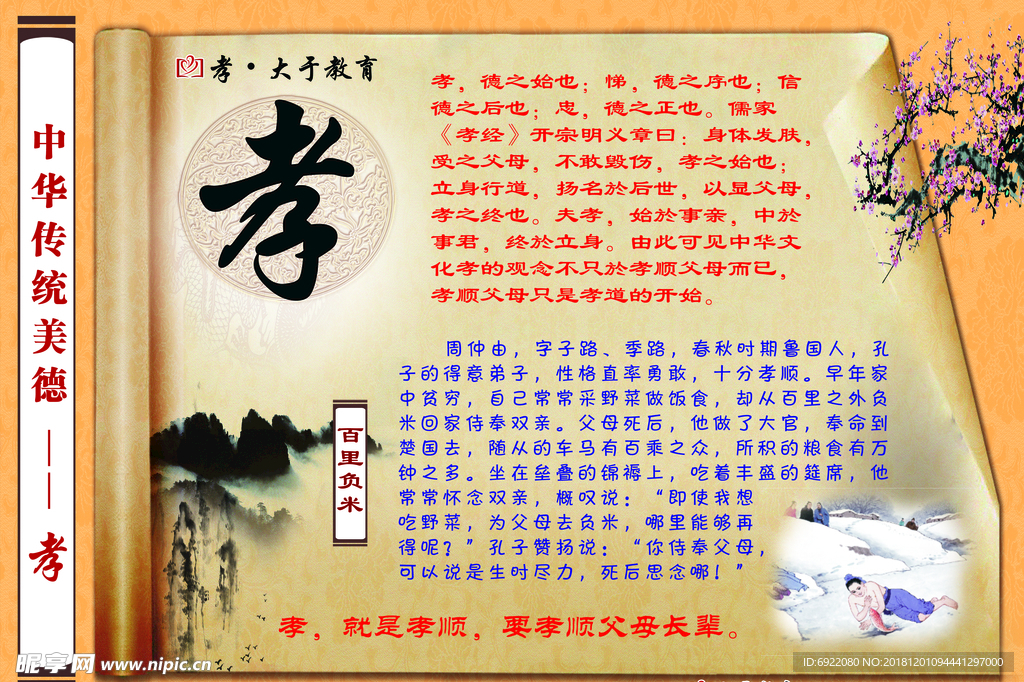 中华传统美德——孝
孝·大于教育
孝
孝，德之始也；悌，德之序也；信
德之后也；忠，德之正也。儒家
《孝经》开宗明义章曰：身体发肤，
受之父母，不敢毁伤，孝之始也；
立身行道，扬名於后世，以显父母，
孝之终也。夫孝，始於事亲，中於
事君，终於立身。由此可见中华文
化孝的观念不只於孝顺父母而已，
孝顺父母只是孝道的开始。
周仲由，字子路、季路，春秋时期鲁国人，孔
子的得意弟子，性格直率勇敢，十分孝顺。早年家
中贫穷，自己常常采野菜做饭食，却从百里之外负
米回家侍奉双亲。父母死后，他做了大官，奉命到
楚国去，随从的车马有百乘之众，所积的粮食有万
钟之多。坐在垒叠的锦褥上，吃着丰盛的筵席，他
常常怀念双亲，慨叹说：“即使我想
吃野菜，为父母去负米，哪里能够再
得呢？”孔子赞扬说：“你侍奉父母，
可以说是生时尽力，死后思念哪！”
百里负米
孝，就是孝顺，要孝顺父母长辈。
昵享网 www.nipic.cn
ID:6922080 NO:20181201094441297000